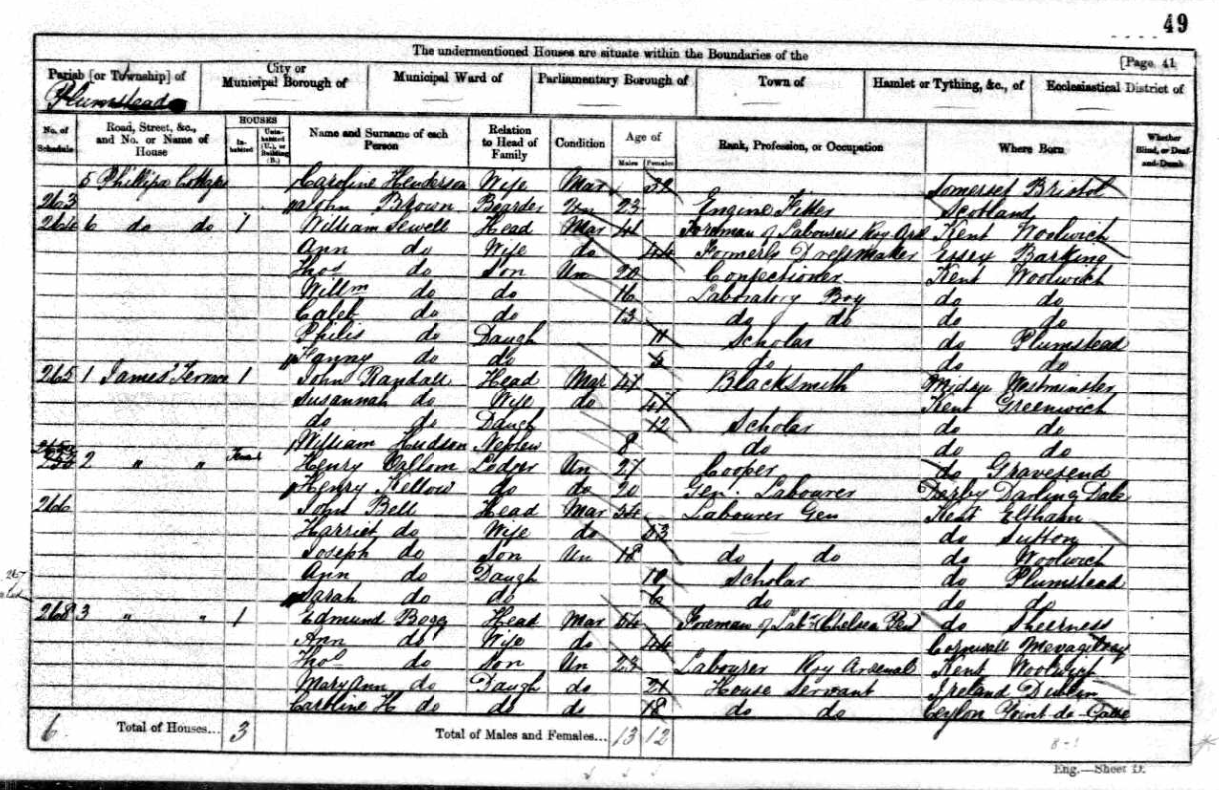 49
The undermentioned Houses are situate within the Boundaries of the
[Page 41
Parish [or Township] of City or Municipal Borough of Municipal Ward of Parliamentary Borough of Town of Hamlet or Tything, &c., of Ecclesiastical District of
Plumstead
No. of Schedule Road, Street, &c., and No. or Name of House HOUSES Inhabited Uninhabited (U.), or Building (B.) Name and Surname of each Person Relation to Head of Family Condition Age of Males Females Rank, Profession, or Occupation Where Born Whether Blind, or Deaf-and-Dumb
5 Phillips Cottages Caroline Henderson Wife Mar 32 Somerset Bristol
263 John Brown Boarder Un 23 Engine Fitter Scotland
264 6 do do 1 William Sewell Head Mar 41 Foreman of Labourers Roy Ars Kent Woolwich
Ann do Wife do 44 Formerly Dressmaker Essex Barking
Thos do Son Un 20 Confectioner Kent Woolwich
Willm do do 16 Laboratory Boy do do
Caleb do do 13 do do do do
Philis do Daugh 11 Scholar do Plumstead
Fanny do do do do do
265 1 James' Terrace 1 John Randall Head Mar 47 Blacksmith Mydsx Westminster
Susannah do Wife do 47 Kent Greenwich
do do Daugh 12 Scholar do do
William Hudson Nephew 8 do do do
2 " " Henry Lodger Un 27 Cooper do Gravesend
Henry Kellow do do 20 Gen. Labourer Derby Darling Dale
266 John Bell Head Mar 54 Labourer Gen Kent Eltham
Harriet do Wife do 53 do Sutton
Joseph do Son Un 18 do do do Woolwich
Ann do Daugh 10 Scholar do Plumstead
Sarah do do 6 do do do
268 3 " " 1 Edmund Bogg Head Mar 54 Foreman of Labrs Chelsea Pen do Sheerness
Ann do Wife do 44 Cornwall
Thos do Son Un 23 Labourer Roy Arsenal Kent Woolwich
Mary Ann do Daugh do 21 House Servant Ireland Dublin
Caroline H do do do 18 do do Ceylon Point de Galle
6 Total of Houses... 3 Total of Males and Females... 13 12
Eng.—Sheet D.